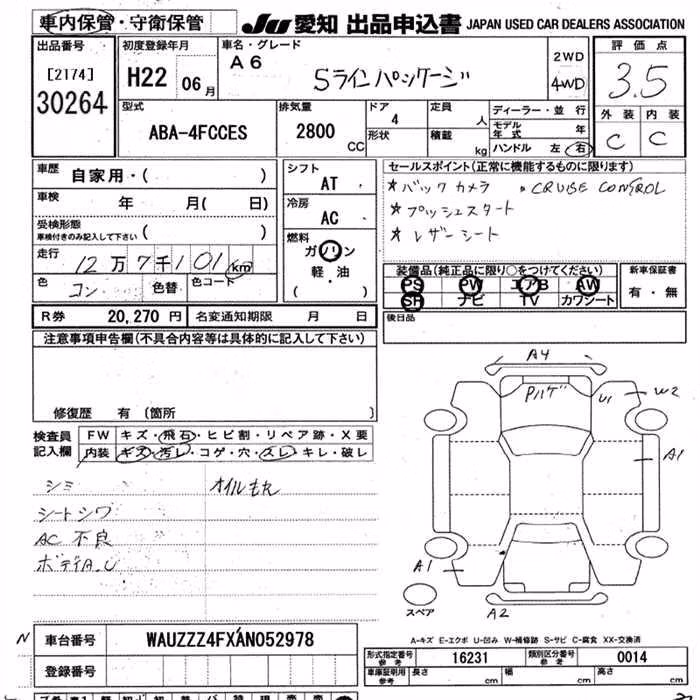 車内保管・守衛保管 JU 愛知 出品申込書 JAPAN USED CAR DEALERS ASSOCIATION
出品番号 初度登録年月 車名・グレード 評価点
[2174] H22 06月 A6 Sラインパッケージ 2WD 3.5
30264 4WD
型式 排気量 ドア 定員 ディーラー・並行 外装 内装
ABA-4FCCES 2800 CC 4 人 モデル年式 年 C C
形状 積載 kg ハンドル 左 右
車歴 自家用・( ) シフト AT セールスポイント(正常に機能するものに限ります)
車検 年 月( 日) 冷房 AC ★バックカメラ ・CRUISE CONTROL
受検形態 ★プッシュスタート
車検付きのみ記入して下さい ( ) 燃料 ★レザーシート
走行 12万7千101km ガソリン
色 コン 色替 色コード 軽・油 ( )
装備品(純正品に限り○をつけてください) 新車保証書
PS PW エアB AW 有・無
SR ナビ TV カワシート
R券 20,270円 名変通知期限 月 日 後日品
注意事項申告欄(不具合内容等は具体的に記入して下さい)
修復歴 有 (箇所 )
検査員記入欄 FW キズ・飛石・ヒビ割・リペア跡・X要
内装 キズ・汚レ・コゲ・穴・スレ・キレ・破レ
シミ オイルもれ
シートシワ
AC不良
ボデイA.U
A4
U1 W2
A1
A1
A2
スペア
A-キズ E-エクボ U-凹み W-補修跡 S-サビ C-腐食 XX-交換済
N 車台番号 WAUZZZ4FXAN052978
登録番号
形式指定番号 参考 16231 類別区分番号 参考 0014
車庫証明用 参考 長さ cm 幅 cm 高さ cm